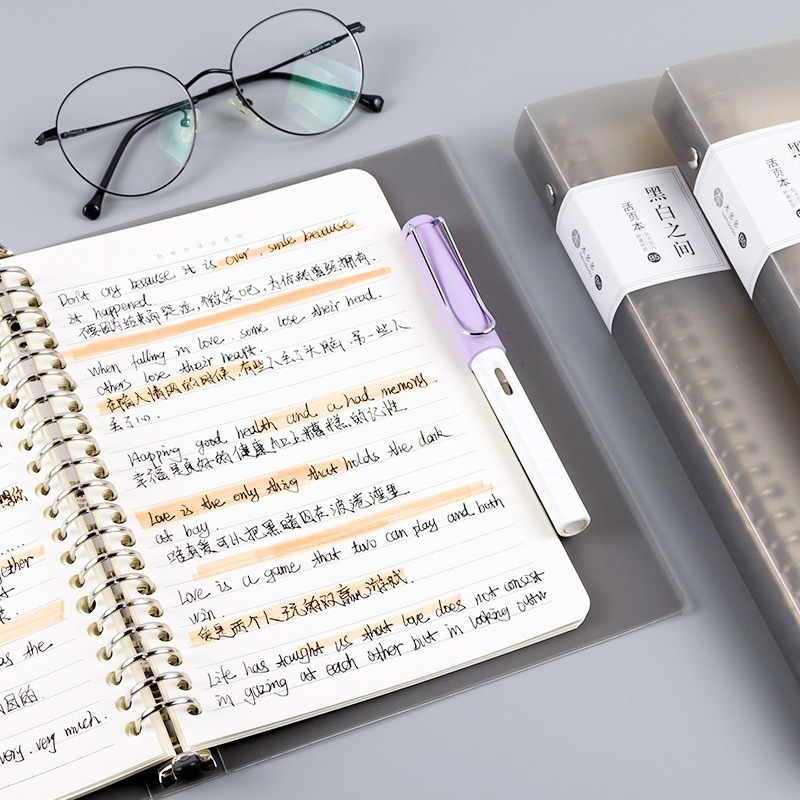 bendodo
Don't cry because it is over, smile because
it happened.
不要因为结束而哭泣,微笑吧,为你的曾经拥有.
When falling in love, some lose their head.
others lose their heart.
在陷入情网的时候,有些人丢了头脑,另一些人
丢了心.
Happing good health and a had memory.
幸福是良好的健康加上糟糕的记性
Love is the only thing that holds the dark
at bay.
唯有爱可以把黑暗囚在波港湾里
Love is a game that two can play and both
win.
是两个人玩的双赢游戏.
Life has taught us that love does not consist
in gazing at each other but in looking outw
ether
as the
very, very much.
黑白之间
活页本
B5
黑
活页本
B5